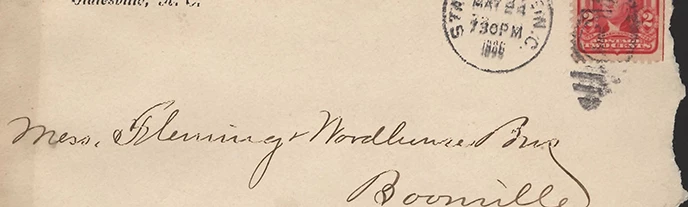 Statesville, N. C.
STA N.C.
MAY 24
7 30PM
2 2
TWO CENTS
Mess. Fleming & Woodhouse Bros
Boonville